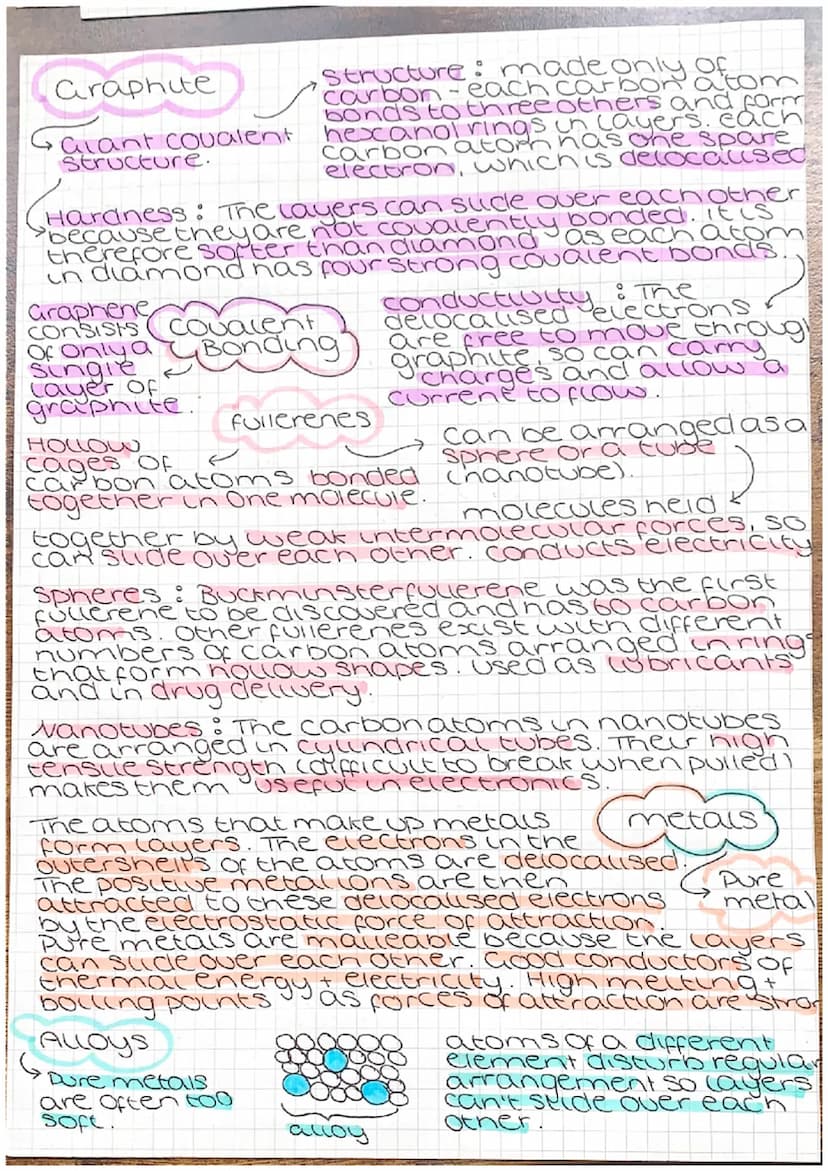 Graphite
Structure : made only of
carbon - each carbon atom
bonds to three others and form
hexcanol rings in layers. each
carbon atom has one spare
electron, which is delocalised
Giant covalent
structure.
Hardness : The layers can slide over each other
because they are not covalently bonded. it is
therefore softer than diamond, as each atom
in diamond has four strong covalent bonds.
Graphene
consists
of only a
single
layer of
graphite.
Covalent
Bonding
conductivity : The
delocalised electrons
are free to move throug
graphite, so can carry
charges and allow a
current to flow.
fullerenes
Hollow
cages of
carbon atoms bonded
together in one molecule.
can be arranged as a
sphere or a tube
(nanotube).
molecules held
together by weak intermolecular forces, so
can slide over each other. conducts electricity
Spheres : Buckminsterfullerene was the first
fullerene to be discovered and has 60 carbon
atoms. other fullerenes exist with different
numbers of carbon atoms arranged in rings
that form hollow shapes. used as lubricants
and in drug delivery.
Nanotubes : The carbon atoms in nanotubes
are arranged in cylindrical tubes. Their high
tensile strength (difficult to break when pulled)
makes them useful in electronics.
metals
The atoms that make up metals
form layers. The electrons in the
outershells of the atoms are delocalised.
The positive metal ions are then
attracted to these delocalised electrons
by the electrostatic force of attraction.
Pure
metal
Pure metals are malleable because the layers
can slide over each other. Good conductors of
thermal energy + electricity. High melting +
boiling points, as forces of attraction are stron
Alloys
Pure metals
are often too
soft.
alloy
atoms of a different
element disturb regular
arrangement so layers
can't slide over each
other.